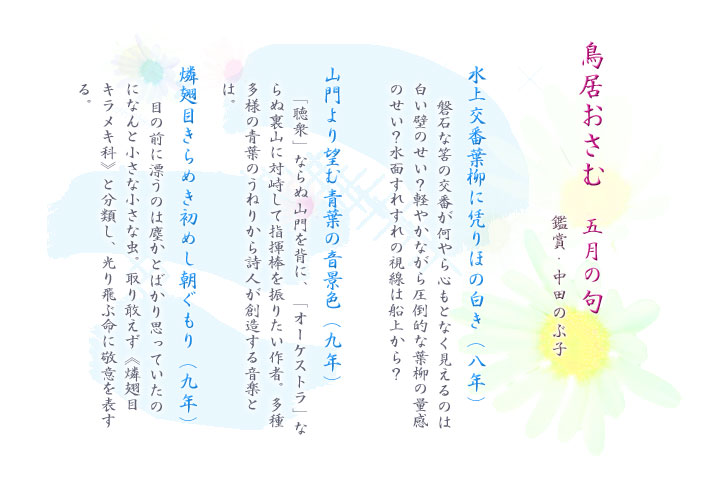 鳥居おさむ　五月の句
鑑賞・中田のぶ子
水上交番葉柳に凭りほの白き（八年）
磐石な筈の交番が何やら心もとなく見えるのは
白い壁のせい？軽やかながら圧倒的な葉柳の量感
のせい？水面すれすれの視線は船上から？
山門より望む青葉の音景色（九年）
「聴衆」ならぬ山門を背に、「オーケストラ」な
らぬ裏山に対峙して指揮棒を振りたい作者。多種
多様の青葉のうねりから詩人が創造する音楽と
は。
燐翅目きらめき初めし朝ぐもり（九年）
目の前に漂うのは塵かとばかり思っていたの
になんと小さな小さな虫。取り敢えず《燐翅目
キラメキ科》と分類し、光り飛ぶ命に敬意を表す
る。